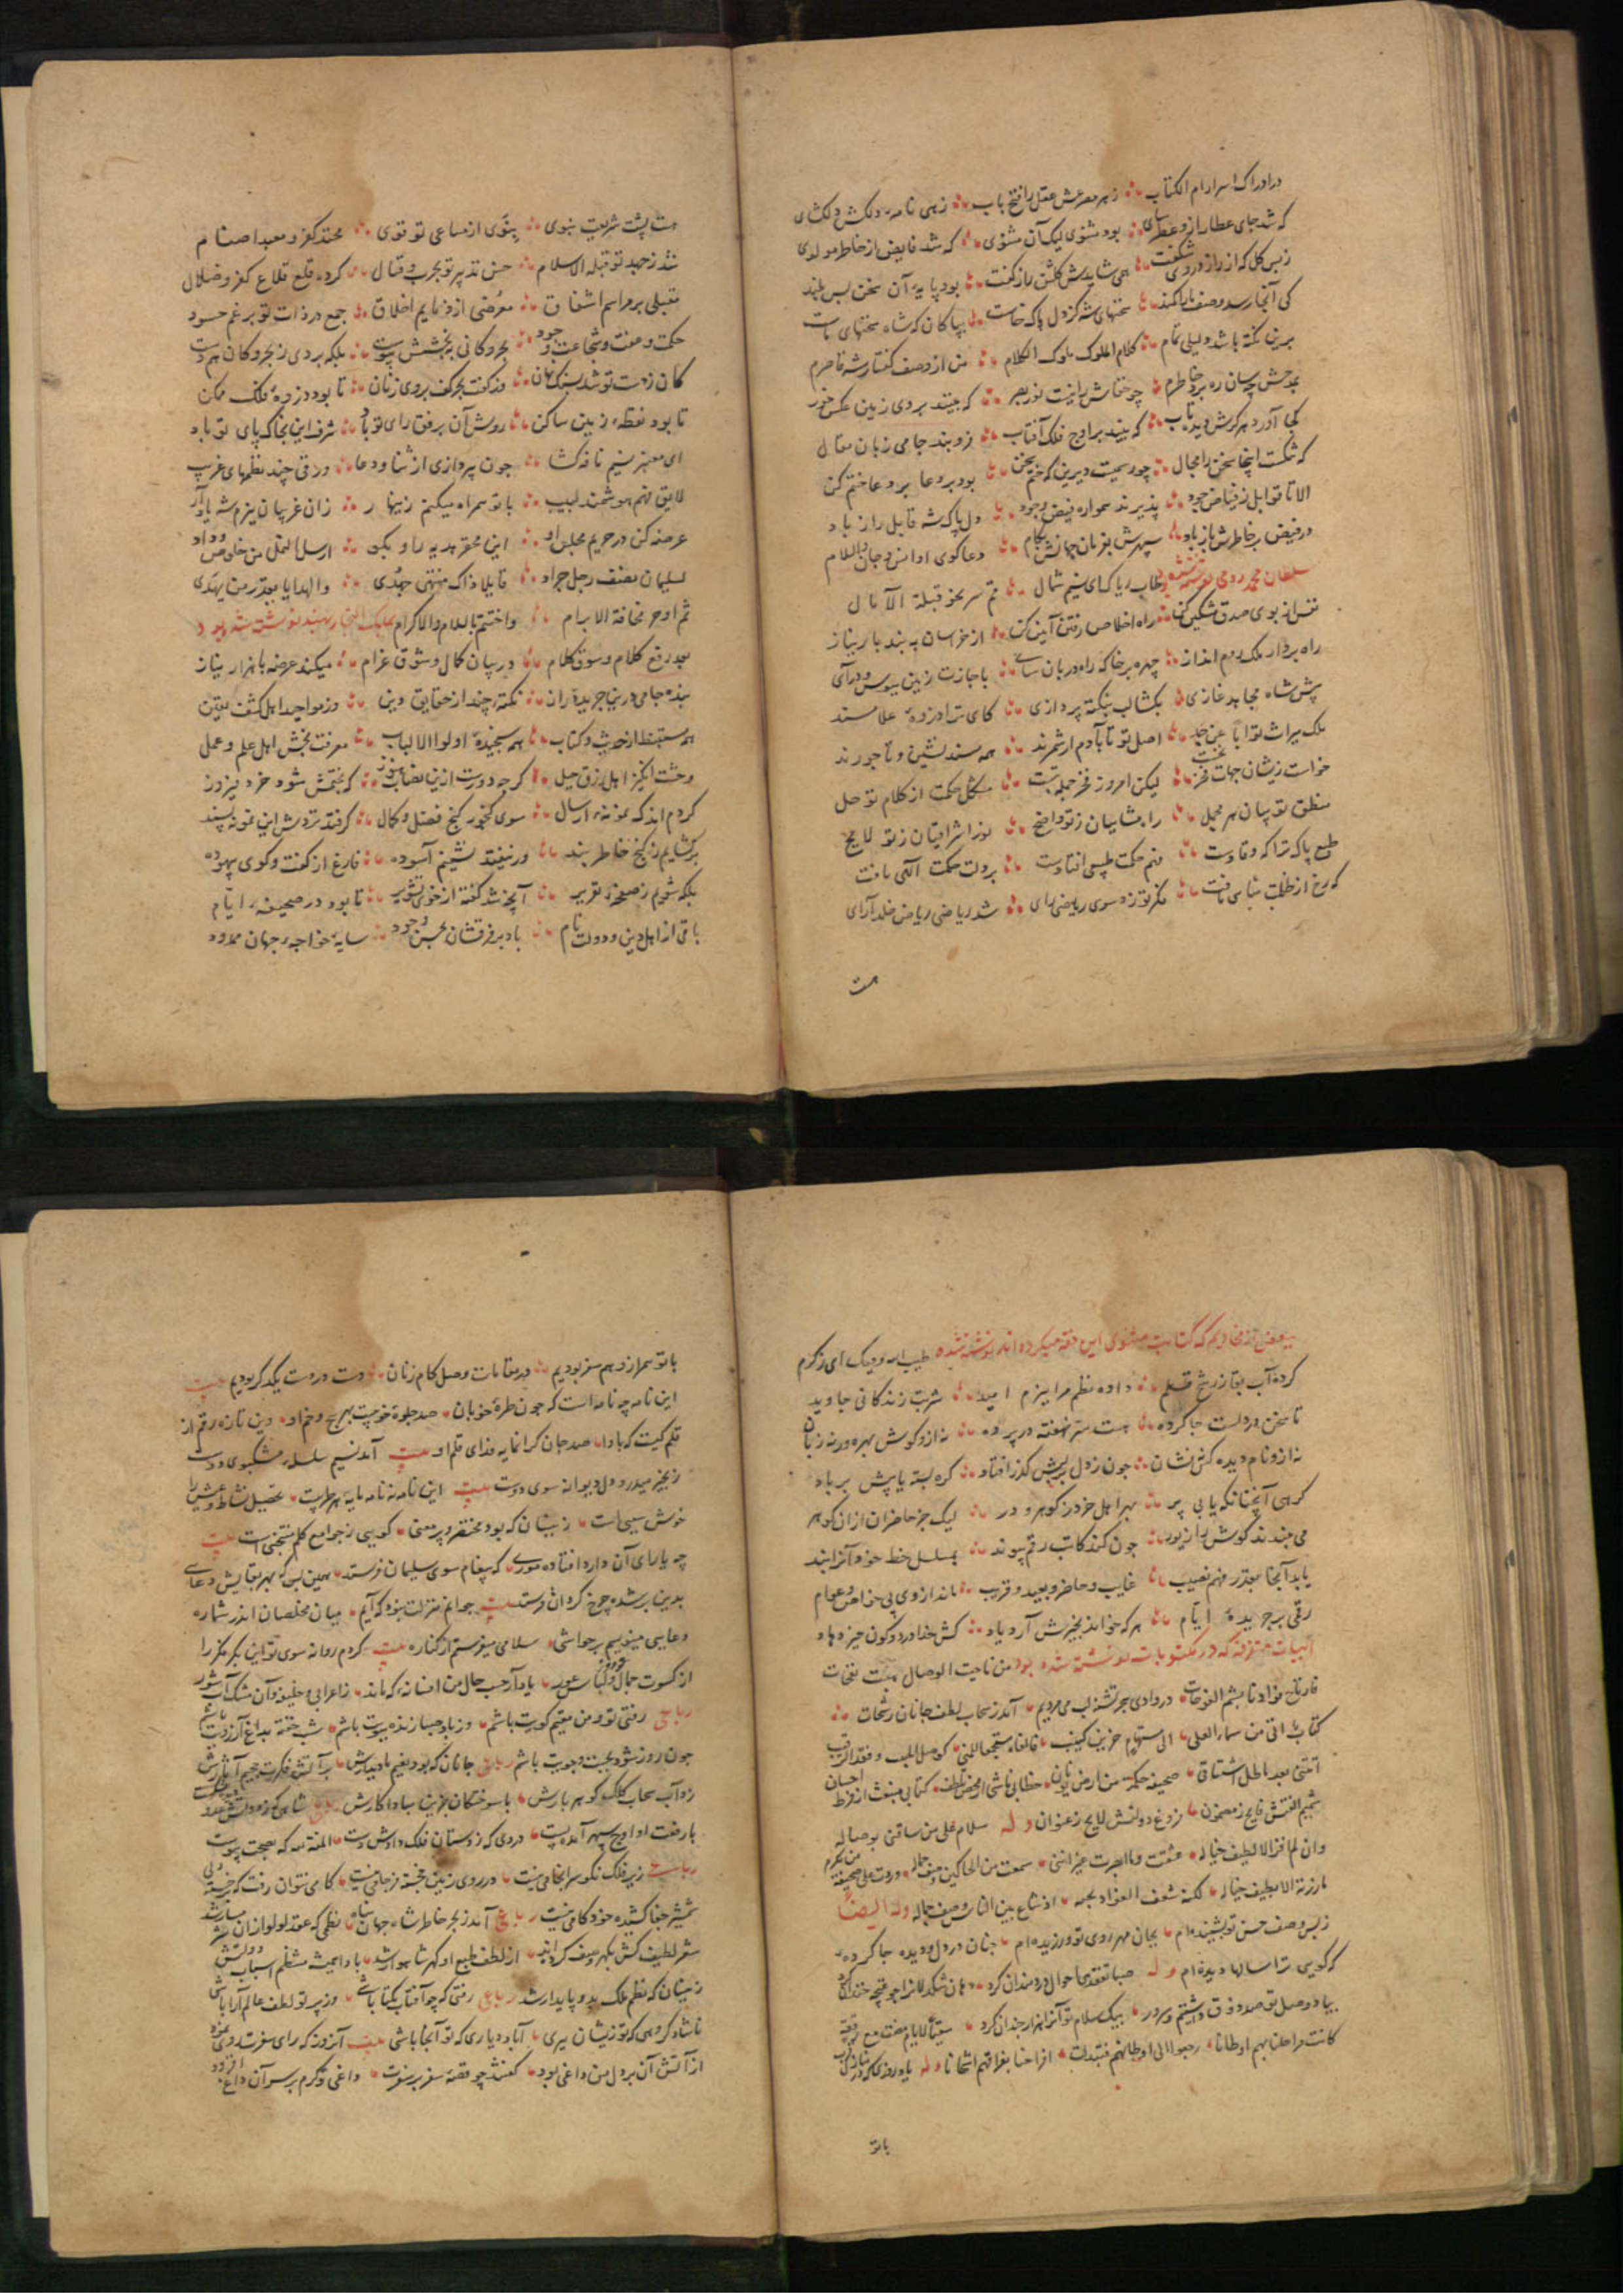 در ادراک اسرار ام الکتاب ز هر مصرعش عقل را فتح باب زهی نامهٔ دلکش دلکشای
که شد جای عطار ازو عطرسای بود مثنوی لیک آن مثنوی که شد فایض از خاطر مولوی
ز بس گل که از راز در وی شکفت همی شایدش گلشن راز گفت بود پایهٔ آن سخن بس بلند
کی آنجا رسد وصف را کمند سخنهای شه کز دل پاک خاست بپاکان که شاه سخنهای ماست
برین نکته باشد دلیلی تمام کلام الملوک ملوک الکلام من از وصف گفتار شه قاصرم
بمدحش چسان ره برد خاطرم چو خفاش را نیست نور بصر که بیند بروی زمین عکس خور
کجا آورد هرگزش دیده تاب که بیند بر اوج فلک آفتاب فروبند جامی زبان مقال
که تنگست اینجا سخن را مجال چو رسمیست دیرین که ختم سخن بود بر دعا بر دعا ختم کن
الا تا قوابل ز فیاض جود پذیرند همواره فیض وجود دل پاک شه قابل راز باد
در فیض بر خاطرش باز باد سپهرش بفرمان جهانش بکام دعا گوی او انس و جان والسلام
سلطان محمد رومی نوشته شده بود طاب ریاک ای نسیم شمال قم سر نحو قبلة الآمال
نفس از بوی صدق مشکین کن راه اخلاص رفتن آیین کن از خراسان ببند بار نیاز
راه بردار ملک روم انداز چهره بر خاک راه دربان سای باجازت زمین ببوس و درآی
پیش شاه مجاهد غازی بکشا لب بنکته پردازی کای ترا در زوهٔ علا مسند
ملک میراث تو ابا عن جد اصل تو تا بآدم ار شمرند همه مسند نشین و تاجورند
خواست زیشان جهات فخر نخست لیکن امروز فخر جمله بتست مشکل حکمت از کلام تو حل
منطق تو بیان هر مجمل راه مشاییان ز تو واضح نور اشراقیان ز تو لایح
طبع پاک ترا که وقادست فهم حکمت طبیعی افتادست بردلت حکمت الهی تافت
که رخ از ظلمت تباهی تافت فکر تو زد سوی ریاضی رای شد ریاضی ریاض خلد آرای
هست
هست پشت شریعت نبوی بنوی از مساعی تو قوی محتد کفر و معبد اصنام
شد ز جهد تو قبلة الاسلام حسن تدبیر تو بحرب و قتال کرده قلع قلاع کفر و ضلال
مقبلی بر مراسم اشفاق معرضی از ذمایم اخلاق جمع در ذات تو برغم حسود
حکمت و عفت و شجاعت و جود بحر و کانی ببخشش پیوست بلکه بردی ز بحر و کان هم دست
کان ز دستت تو شد بسنگ نهان وز کفت بحر کف بروی زنان تا بود در زوهٔ فلک ممکن
تا بود نقطهٔ زمین ساکن روش آن برفق رای تو باد شرف این بخاک پای تو باد
ای معنبر نسیم نافه گشا چون بپردازی از ثنا و دعا ورقی چند نظمهای غریب
لایق فهم هوشمند لبیب با تو همراه میکنم زینهار زان غریبان ببزم شه یاد آر
عرضه کن در حریم مجلس او این محقر هدیه را و بگو ارسل النمل من خلوص وداد
لسلیمان نصف رجل جراد قایلا ذاک منتهی جهدی والهدایا بقدر من یهدی
ثم اوجز مخافة الابرام واختتم بالسلام والاکرام بملک التجار بهند نوشته شده بود
بعد رفع کلام و سوق کلام در بیان کمال و شوق غرام میکند عرضه با هزار نیاز
بنده جامی درین جریدهٔ راز نکتهٔ چند از حقایق دین وز مواجید اهل کشف و یقین
هم مستنبط از حدیث و کتاب هم سنجیدهٔ اولوا الالباب معرفت بخش اهل علم و عمل
وحشت انگیز اهل زرق و حیل گرچه دورست ازین نصاب هنوز که بختمش شود خرد فیروز
کردم اندک نمونهٔ ارسال سوی گنجور گنج فضل و کمال گر فتد نزدش این نمونه پسند
برگشایم ز گنج خاطر بند ور نیفتد نشینم آسوده فارغ از گفت و گوی بیهوده
بلکه شویم ز صفحهٔ تقریر آنچه شد گفته از خوی تشویر تا بود در صحیفهٔ ایام
باقی از اهل دین و دولت نام باد بر فرقشان بحسن وجود سایهٔ خواجهٔ جهان ممدود
ببعض از مخادیم که کتابت مثنوی این حقه میکرده اند نوشته شده طیب الله وقتک ای ز کرم
کرده آب بقا ز رشح قلم داده نظم مرا ببزم امید شربت زندگانی جاوید
تا سخن در دلست جا کرده هست سر نهفته در پرده نه ازو گوش بهره ور نه زبان
نه ازو نام دیده کس نه نشان چون ز دل بر لبش گذر افتاد گره بسته پایش بر باد
گرهی آنچنانکه یابی پر بهر اهل خرد ز گوهر و در لیک جز حاضران از آن گوهر
می نبندند گوش را زیور چون کند کاتب رقم پیوند بمسلسل خط خود آنرا بند
یابد آنجا بقدر فهم نصیب غایب و حاضر و بعید و قریب ماند از وی پی خواص و عوام
رقمی بر جریدهٔ ایام هر که خواند بخیرش آرد یاد کش خدا در دو کون خیر دهاد
ابیات متفرقه که در مکتوبات نوشته شده بود من ناحیت الوصال هبت نفحات
فارتاح فؤادنا بشم الفوحات در وادی هجر تشنه لب می مردیم آمد ز سحاب لطف جانان رشحات
کتاب اتی من سماء العلی الی مستهام حزین کئیب
اتتنی بعد ما طال اشتیاقی صحیفة حکمت من ارض یونان خطابی ناشی از محض لطف کتابی منبعث از فرط احسان
شمیم الفتش فایح ز مضمون فروغ دولتش لایح ز عنوان وله سلام علی من ساقنی بوصاله
وان لم افز الا بطیف خیاله عشقت وما ابصرت عیر اننی سمعت من الحاکین وصف جماله
وله ایضا
ز بس وصف حسن تو بشنیده ام بجان مهر روی تو ورزیده ام چنان در دل و دیده جا کرده
که گویی ترا سالها دیده ام وله صبا تفقد احوال دردمندان کرد
بیاد وصل تو صد ذوق داشتیم و سرور بیک سلام تو آنرا هزار چندان کرد
کانت مراحلنا بهم اوطانا رجعوا الی اوطانهم فتبدلت افراحنا بفراقهم اشجانا وله
باتو
باتو همراز و هم سفر بودیم در مقامات وصل گام زنان دست در دست یکدگر بودیم بیت
این نامه چه نامه است که چون طرهٔ خوبان صد جلوهٔ خوبیست بهر پیچ و خم او وین تازه رقم از
قلم کیست که بادا صد جان گرانمایه فدای قلم او بیت آمد نسیم سلسلهٔ مشکبوی دوست
زنجیر میدرد دل دیوانه سوی دوست بیت این نامه نه نامه مایهٔ هر طربیست تحصیل نشاط و عیش را
خوش سببی است زینسان که بود مختصر و پر معنی گویی ز جوامع کلم منتخبی است بیت
چه یارای آن دارد افتاده موری که پیغام سوی سلیمان فرستد همین بس که بهر بقایش دعایی
بدین بر شده چرخ گردان فرستد بیت چو این منزلت نبود که آیم میان مخلصان اندر شماره
دعایی مینویسم بر حواشی سلامی میفرستم از کناره بیت کردم روانه سوی تو این بکر فکر را
از کسوت جمال و لباس غرور یاد آر حسب حال من افسانهٔ که ماند ز اعرابی و خلیفه و آن مشک آب شور
رباعی رفتی تو و من مقیم کویت باشم وز باد صبا زنده ببویت باشم شب خفته بداغ آرزویت باشم
چون روز شود بجست و جویت باشم رباعی
زد آب سحاب کلک گوهر بارش با سوختگان جز این مبادا کارش رباعی
با رفعت او اوج سپهر آمده پست المنة لله که بصحت پیوست
رباعی زیر فلک نکو سرانجامی نیست در روی زمین خجسته فرجامی نیست گامی نتوان رفت که خسته دلی
شمشیر جفا کشیده خود کامی نیست رباعی آمد ز بحر خاطر شاه جهان پناه نظمی که عقد لولو از آن شرمسار شد
شعر لطیف کش بگهر وصف کرده اند از لطف طبع او گهر شاهوار شد بادا همیشه منتظم اسباب دولتش
زینسان که نظم ملک بدو پایدار شد رباعی رفتی که چو آفتاب یکتا باشی وز پرتو لطف عالم آرا باشی
ناشاد گروهی که تو زیشان ببری آباد دیاری که تو آنجا باشی بیت آنروز که رای سفرت روی نمود
از آتش آن بر دل من داغی بود گفتند چو قصهٔ سفر بر سفرت داغی دگرم بر سر آن داغ افزود